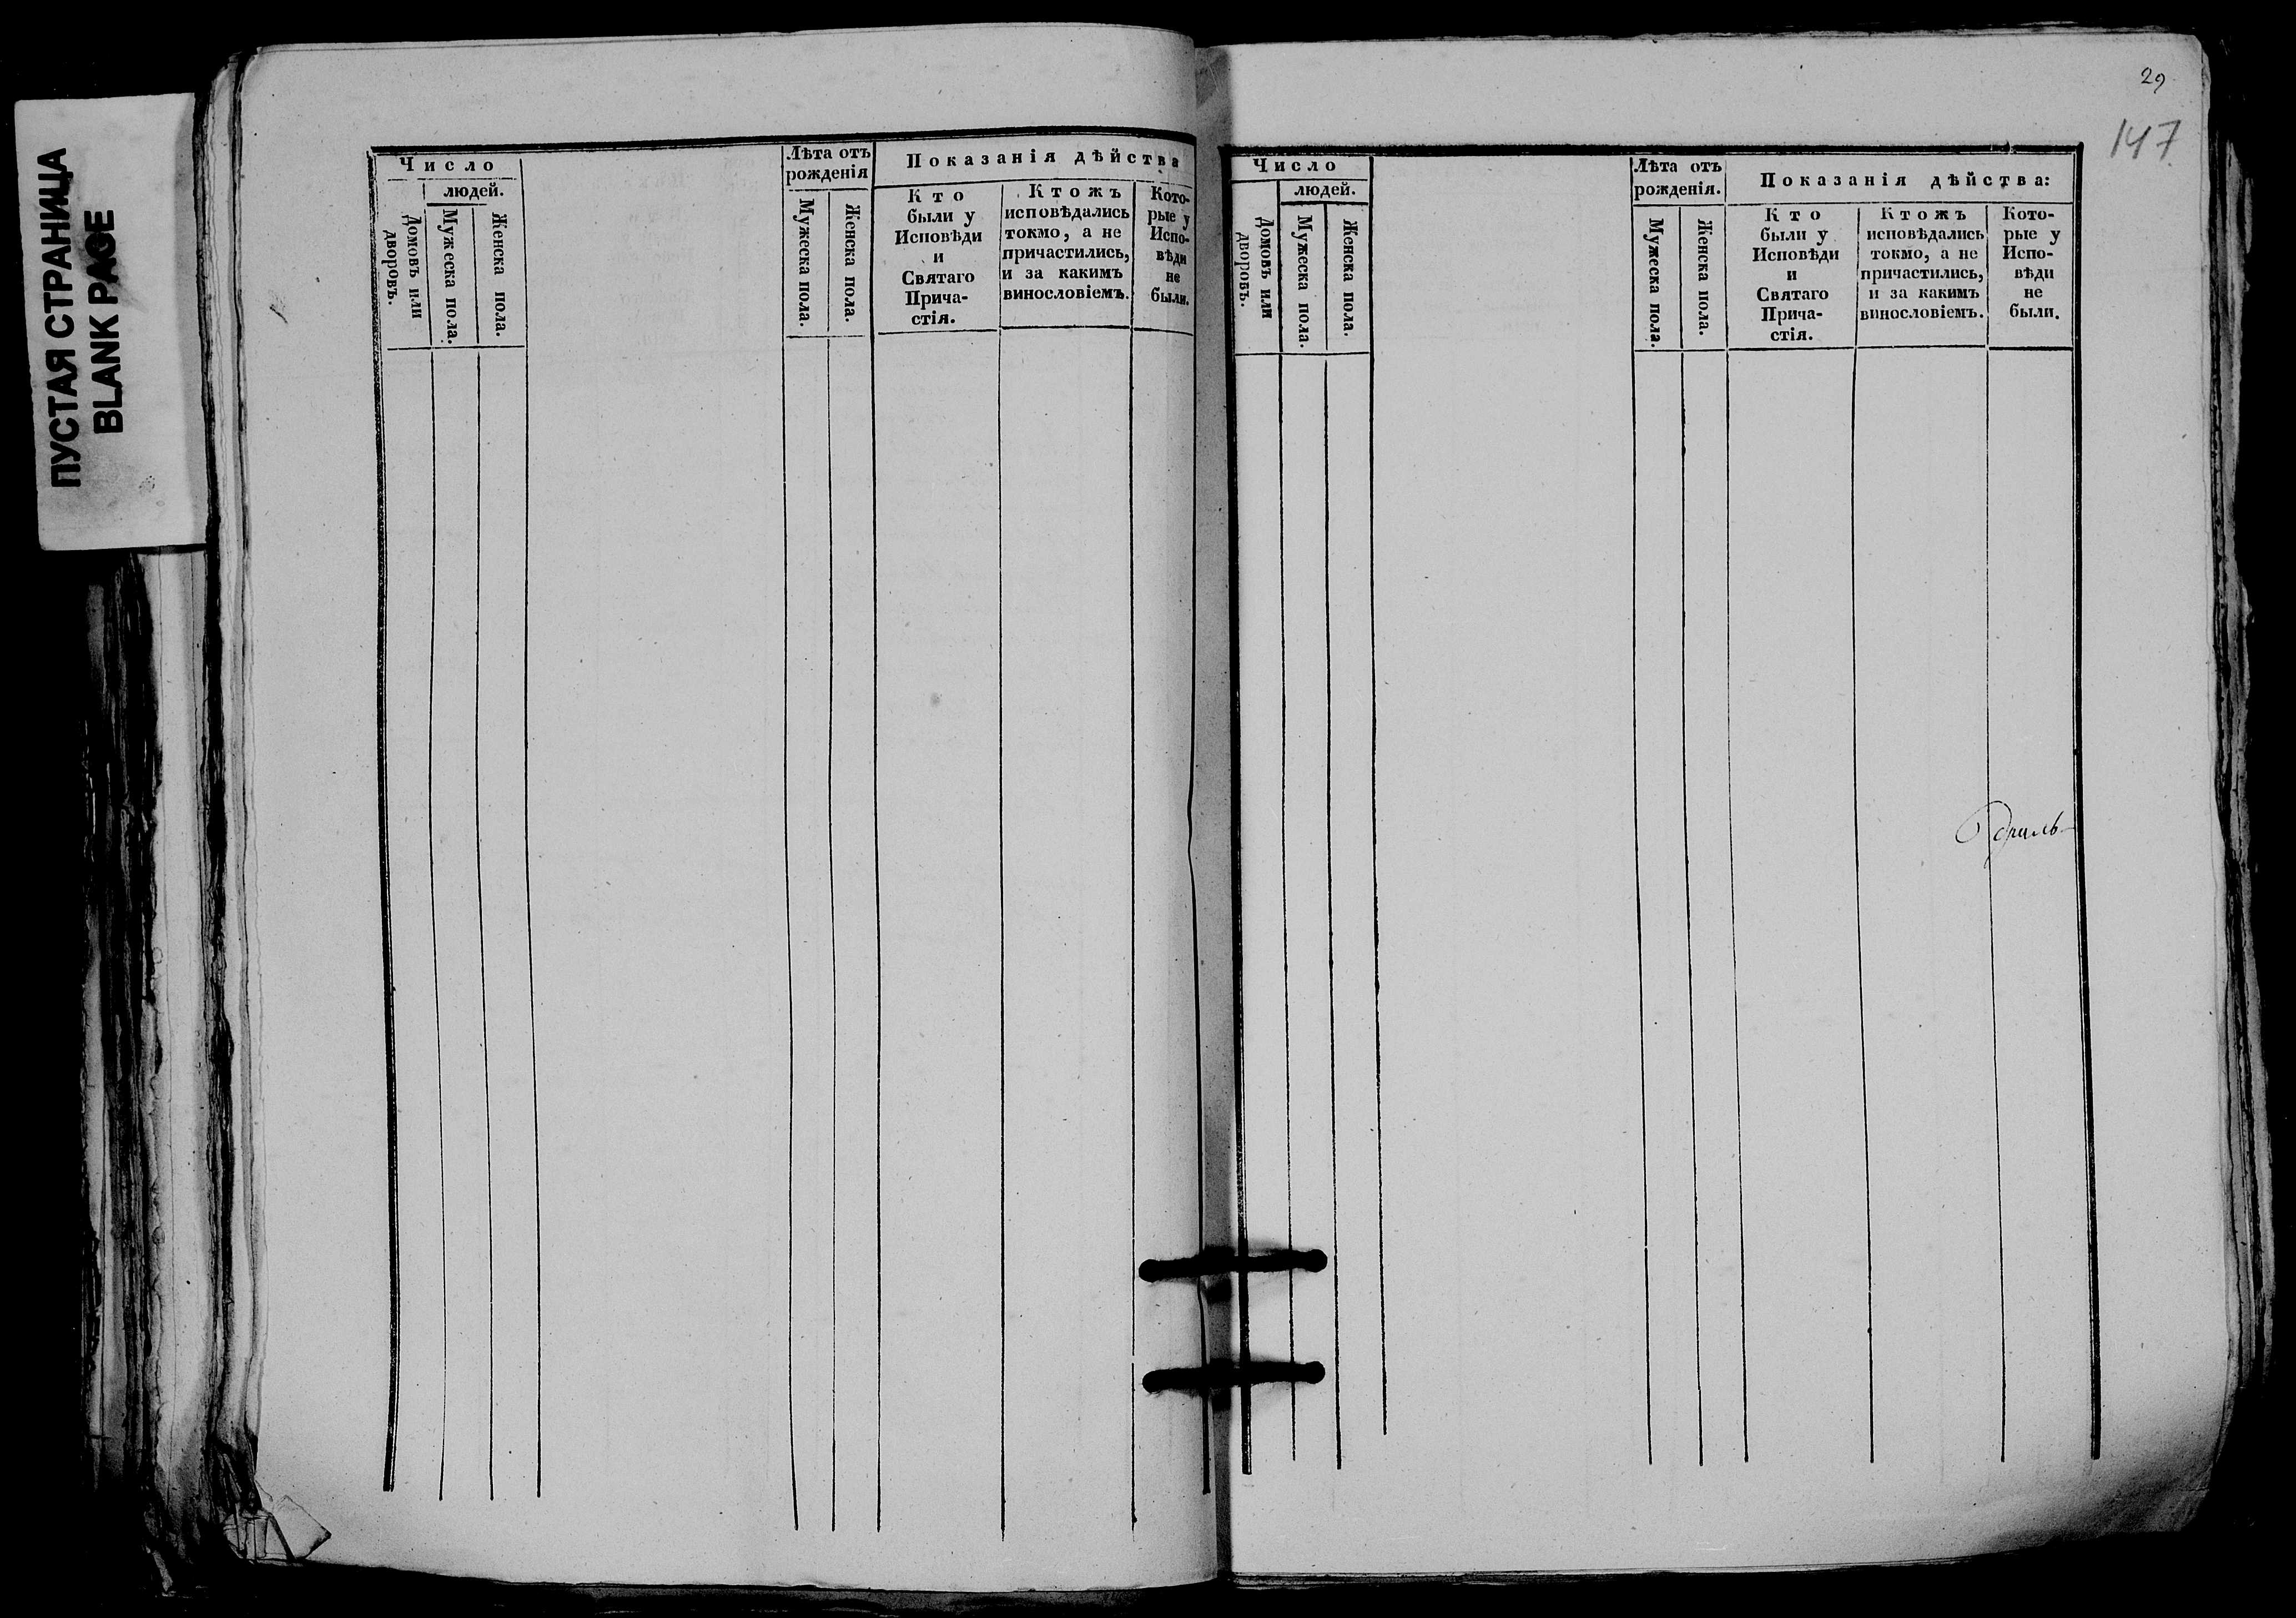 ПУСТАЯ СТРАНИЦА
BLANK PAGE
Число
людей.
Домовъ или
дворовъ.
Мужеска пола.
Женска пола.
Лѣта отъ
рожденія
Мужеска пола.
Женска пола.
Показанія дѣйства
Кто
были у
Исповѣди
и
Святаго
Прича-
стія.
Ктожъ
исповѣдались
токмо, а не
причастились,
и за какимъ
винословіемъ.
Кото-
рые у
Испо-
вѣди
не
были.
29
147
Число
людей.
Домовъ или
дворовъ.
Мужеска пола.
Женска пола.
Лѣта отъ
рожденія.
Мужеска пола.
Женска пола.
Показанія дѣйства:
Кто
были у
Исповѣди
и
Святаго
Прича-
стія.
Ктожъ
исповѣдались
токмо, а не
причастились,
и за какимъ
винословіемъ.
Кото-
рые у
Испо-
вѣди
не
были.